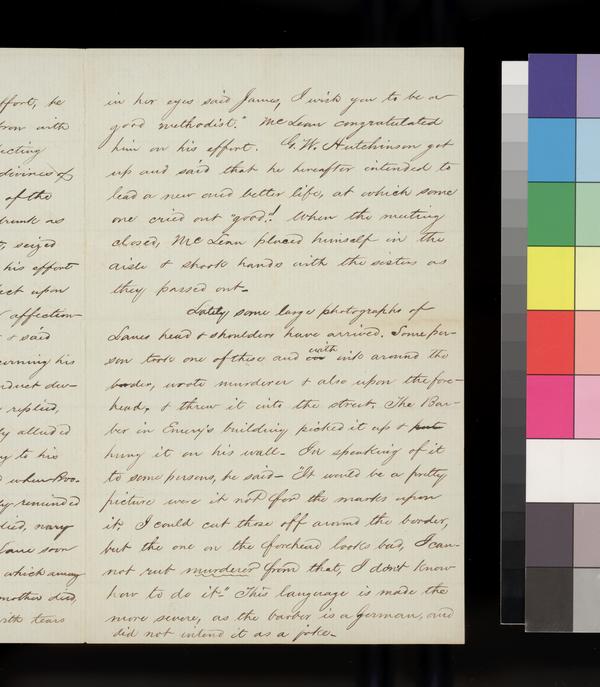 ffort, he
tron with
fecting
divines of
of the
drunk as
t, seized
his effort
fect upon
affection-
+ said
cerning his
nduct dev-
replied,
ly alluded
y to his
when Boo-
ly reminded
died, nary
Lane soon
which away
mother died,
with tears
in her eyes said James, I wish you to be a
good methodist." McLean congratulated
him on his effort. G. W. Hutchinson got
up and said that he hereafter intended to
lead a new and better life, at which some
one cried out "good"! When the meeting
closed, McLean placed himself in the
aisle + shook hands with the sisters as
they passed out-
Lately some large photographs of
Lanes head + shoulders have arrived. Some per-
son took one of these and with ink around the
border, wrote murderer + also upon the fore-
head, + threw it into the street. The Bar-
ber in Emery's building picked it up + put
hung it on his wall- In speaking of it
to some persons, he said- "It would be a pretty
picture were it not for the marks upon
it; I could cut those off around the border,
but the one on the forehead looks bad, I can-
not rub murderer from that, I don't know
how to do it." This language is made the
more severe, as the barber is a german, and
did not intend it as a joke-